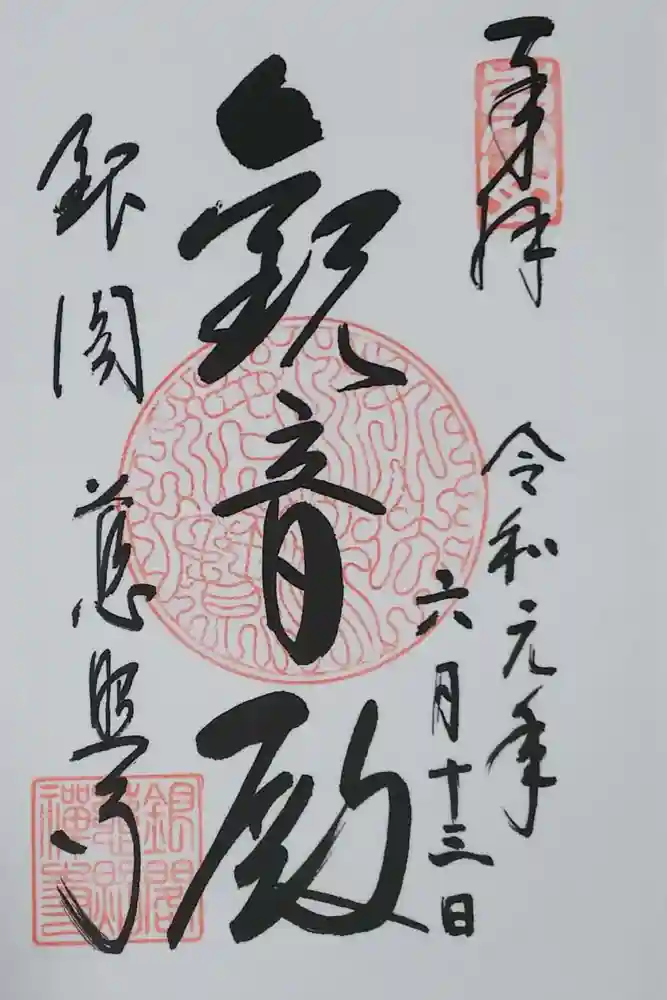 奉拝
令和元年
六月十三日
観音殿
銀閣 慈照寺
銀閣
慈照
禅寺